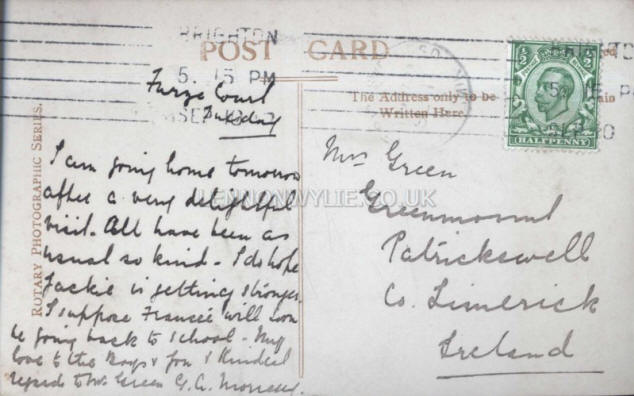 BRIGHTON
5. 15 PM
SEP 20
POST CARD
The Address only to be
Written Here
BRIGHTON
5 15 PM
SEP 20
½ ½
HALFPENNY
ROTARY PHOTOGRAPHIC SERIES.
LENNONWYLIE.CO.UK
Furze Court
Tuesday
I am going home tomorrow
after a very delightful
visit. All have been as
usual so kind - I do hope
Jackie is getting stronger
I suppose Francie will soon
be going back to school - My
love to the Boys & you & kindest
regards to Mr Green G. A.
Mrs Green
Greenmount
Patrickswell
Co. Limerick
Ireland